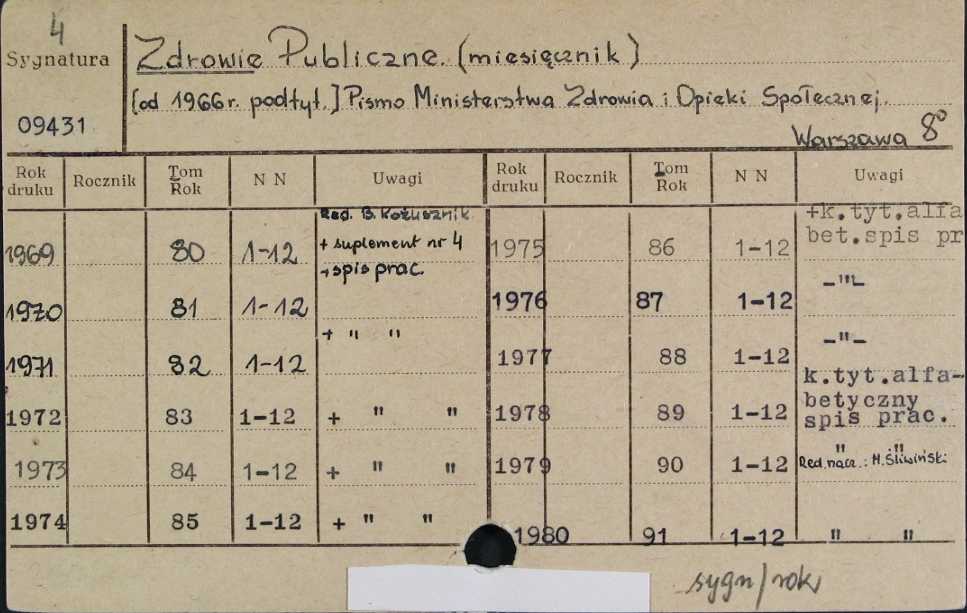 4
Sygnatura
09431
Zdrowie Publiczne. (miesięcznik)
[od 1966 r. podtyt.] Pismo Ministerstwa Zdrowia i Opieki Społecznej.
Warszawa 8°
Rok druku Rocznik Tom Rok N N Uwagi Rok druku Rocznik Tom Rok N N Uwagi
Red. B. Kożusznik
1969 80 1-12 + suplement nr 4
+ spis prac.
1970 81 1-12
+ " "
1971 82 1-12
1972 83 1-12 + " "
1973 84 1-12 + " "
1974 85 1-12 + " "
+k.tyt.alfa
1975 86 1-12 bet.spis pr
1976 87 1-12 -"-
1977 88 1-12 -"-
k.tyt.alfa-
1978 89 1-12 betyczny
spis prac.
" "
1979 90 1-12 Red. nacz.: M. Śliwiński
1980 91 1-12 " "
sygn/rok